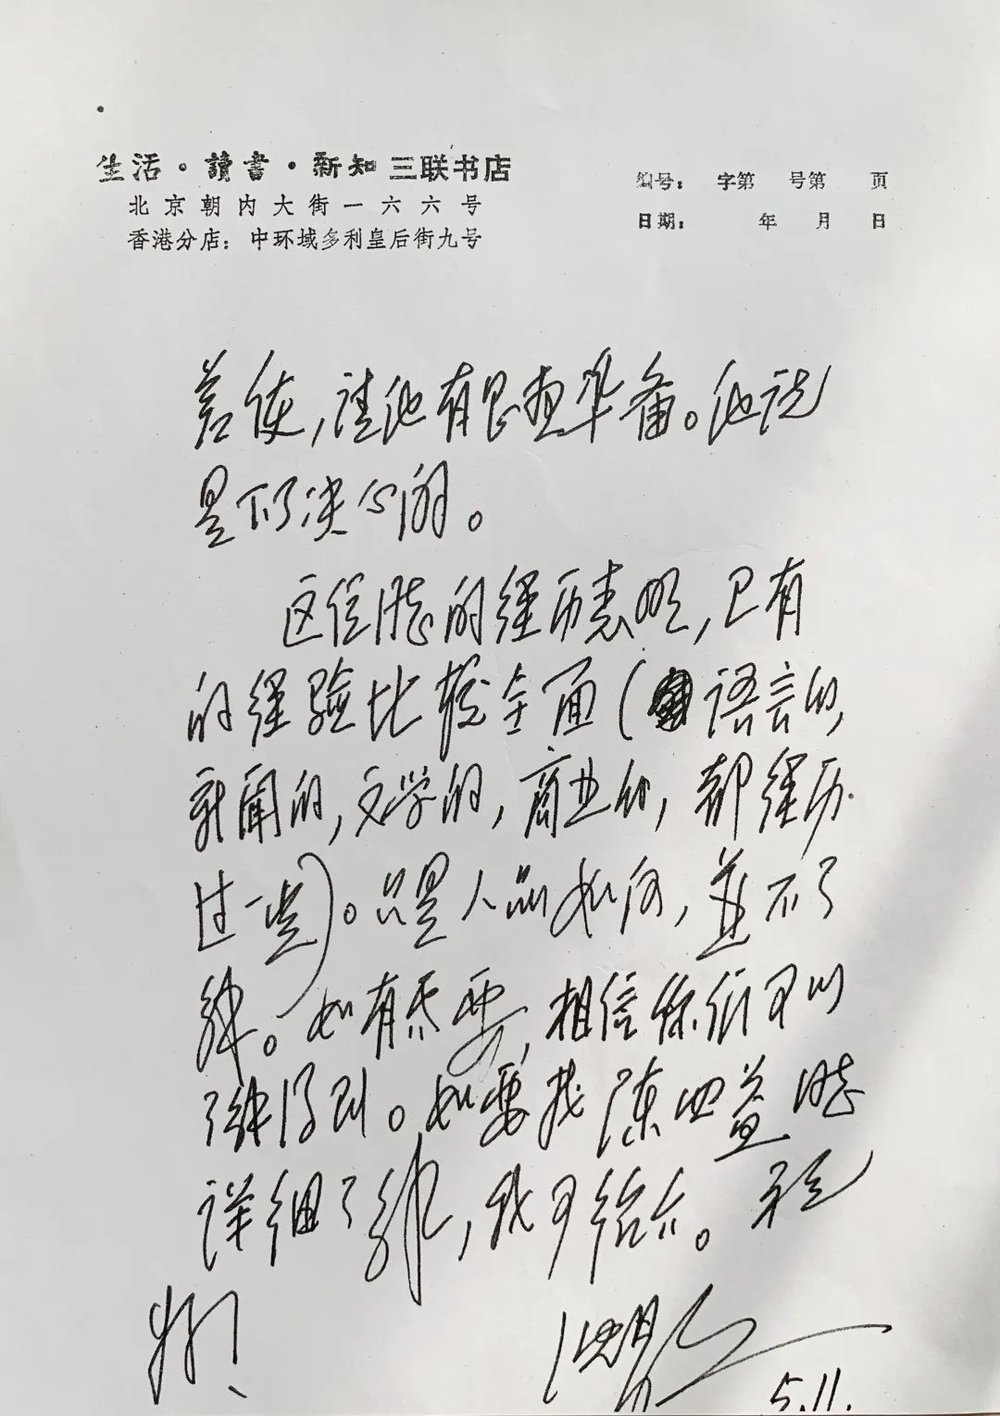 生活·讀書·新知三联书店
北京朝内大街一六六号
香港分店：中环域多利皇后街九号
编号：　字第　号第　页
日期：　年　月　日
差使，请他有思想准备。他说
是下了决心的。
这位同志的经历表明，已有
的经验比较全面（语言的，
新闻的，文学的，商业的，都经历
过一些）。只是人品如何，并不了
解。如有需要，相信你们可以
了解得到。如要找陈四益同志
详细了解，我可绍介。祝
好！
沈昌文
5.11.